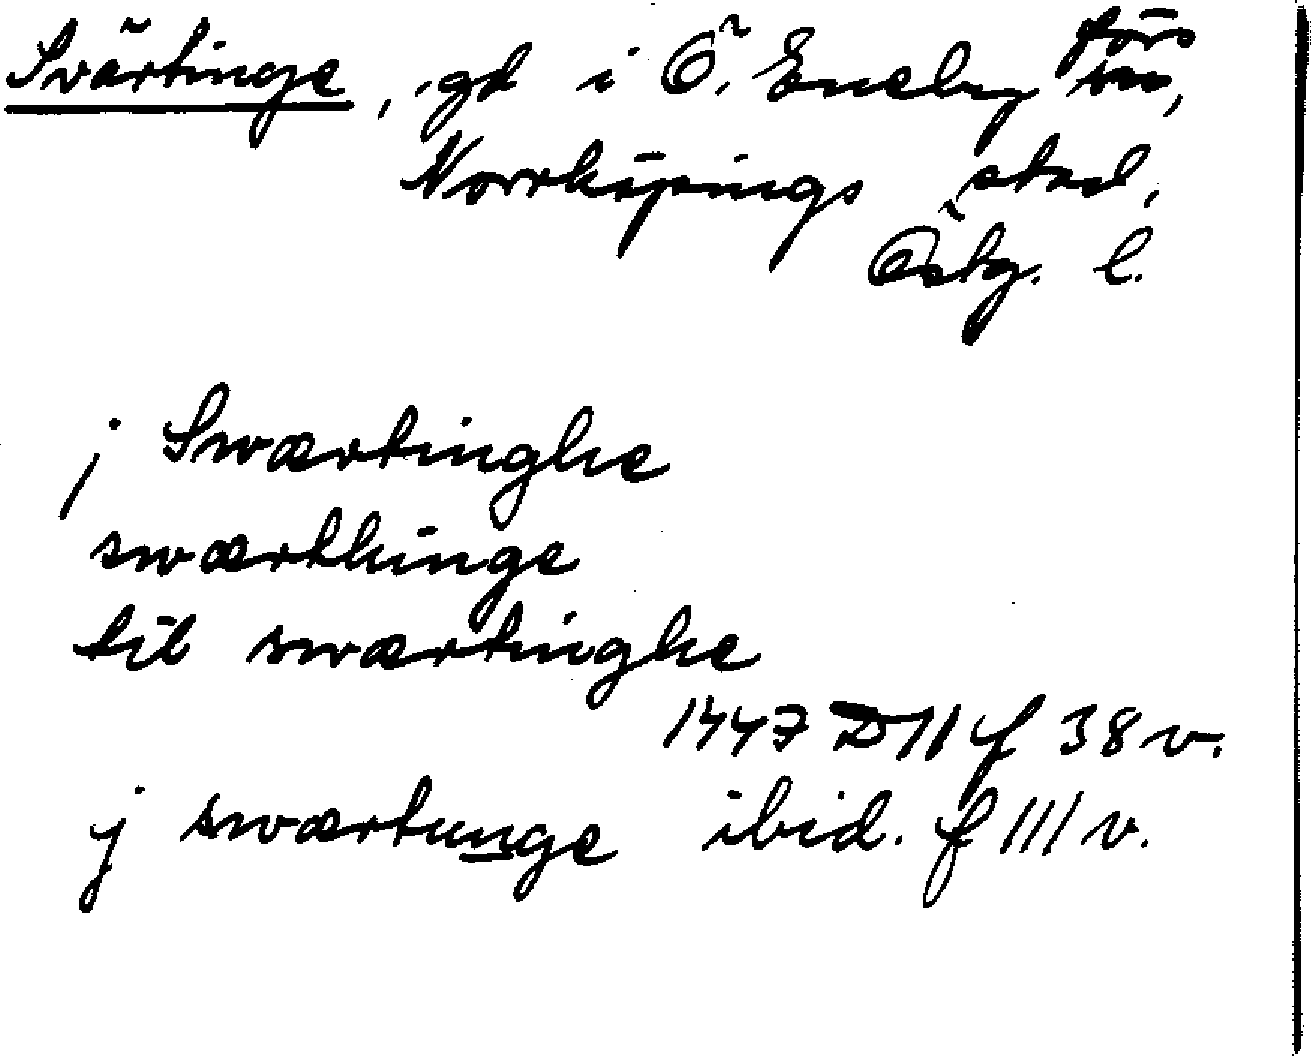 Svärtinge, gd i Ö. Eneby förs
Norrköpings stad,
Östg. l.
j Swærtinghe
swærthinge
til swærtinghe
1447 D11 f 38 v.
j swærtunge ibid. f 111 v.